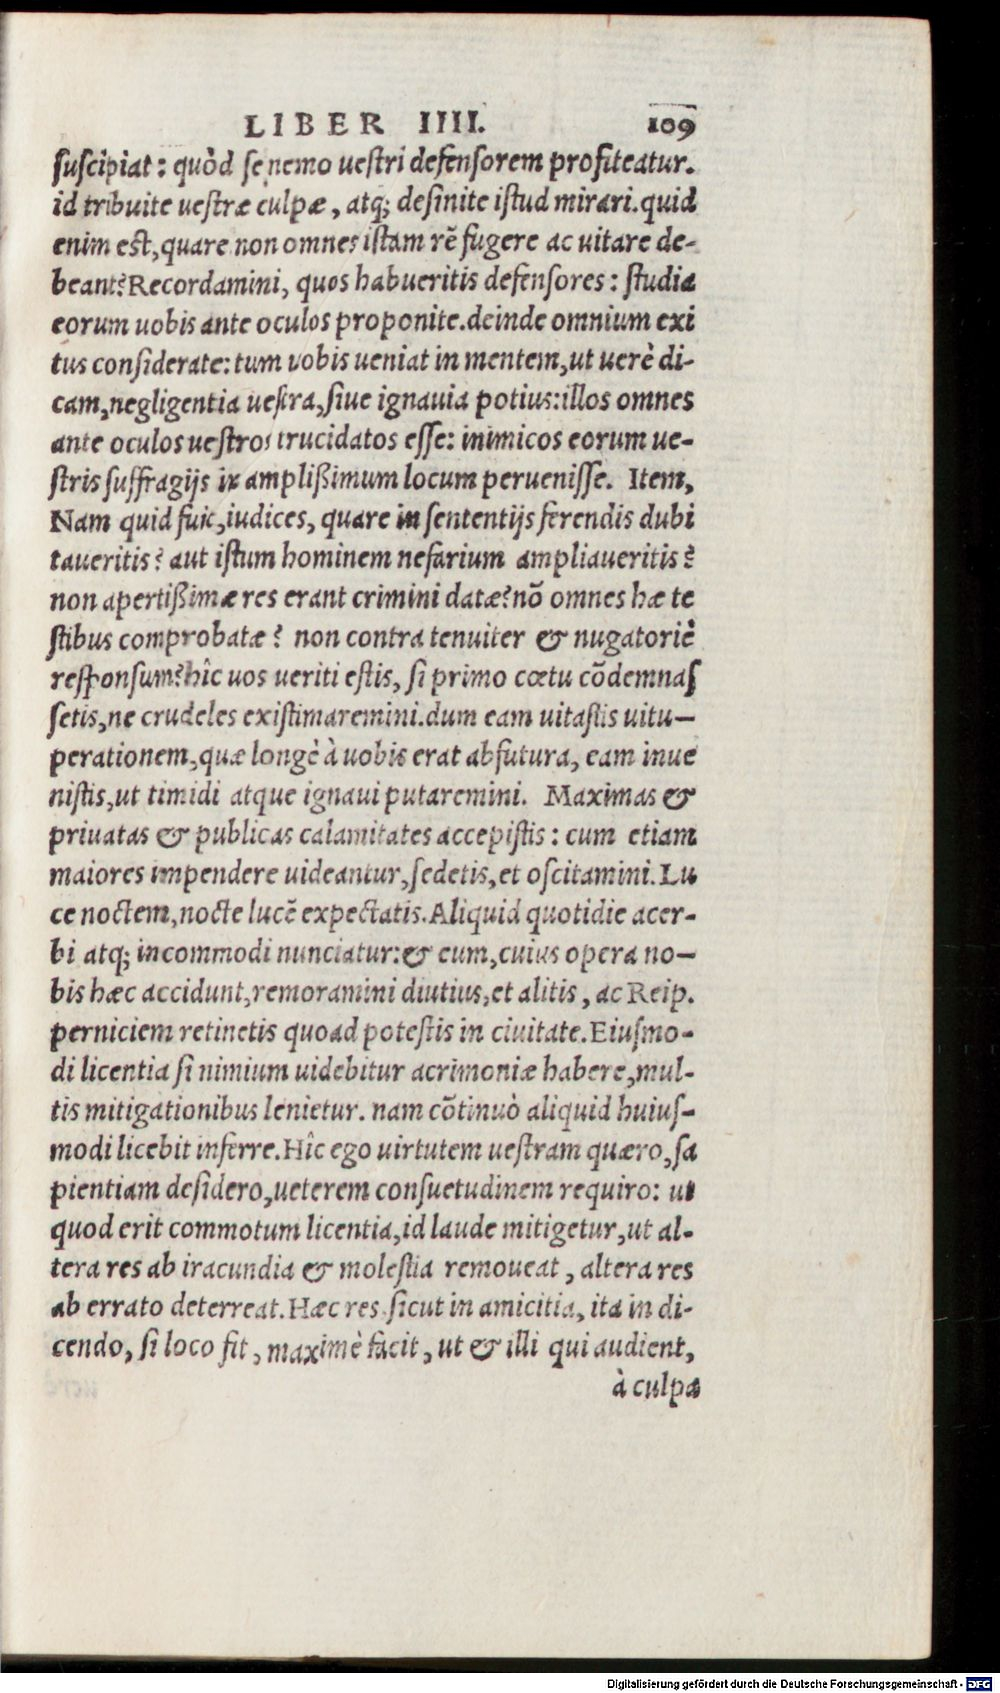 LIBER IIII. 109
suscipiat: quòd se nemo uestri defensorem profiteatur.
id tribuite uestræ culpæ, atq; desinite istud mirari.quid
enim est,quare non omnes istam rē fugere ac uitare de-
beant?Recordamini, quos habueritis defensores: studia
eorum uobis ante oculos proponite.deinde omnium exi
tus considerate: tum vobis ueniat in mentem,ut uerè di-
cam,negligentia uestra,siue ignauia potius:illos omnes
ante oculos uestros trucidatos esse: inimicos eorum ue-
stris suffragijs in amplißimum locum peruenisse. Item,
Nam quid fuit,iudices, quare in sententijs ferendis dubi
taueritis? aut istum hominem nefarium ampliaueritis?
non apertißimæ res erant crimini datæ?nō omnes hæ te
stibus comprobatæ? non contra tenuiter & nugatoriè
responsum?hîc uos ueriti estis, si primo cœtu cōdemnas
setis,ne crudeles existimaremini.dum eam uitastis uitu-
perationem,quæ longè à uobis erat abfutura, eam inue
nistis,ut timidi atque ignaui putaremini. Maximas &
priuatas & publicas calamitates accepistis: cum etiam
maiores impendere uideantur,sedetis,et oscitamini.Lu
ce noctem,nocte lucē expectatis.Aliquid quotidie acer-
bi atq; incommodi nunciatur:& eum,cuius opera no-
bis hæc accidunt,remoramini diutius,et alitis, ac Reip.
perniciem retinetis quoad potestis in ciuitate.Eiusmo-
di licentia si nimium uidebitur acrimoniæ habere,mul-
tis mitigationibus lenietur. nam cōtinuò aliquid huius-
modi licebit inferre.Hîc ego uirtutem uestram quæro,sa
pientiam desidero,ueterem consuetudinem requiro: ut
quod erit commotum licentia,id laude mitigetur,ut al-
tera res ab iracundia & molestia remoueat, altera res
ab errato deterreat.Hæc res sicut in amicitia, ita in di-
cendo, si loco fit, maximè facit, ut & illi qui audient,
à culpa
Digitalisierung gefördert durch die Deutsche Forschungsgemeinschaft - DFG